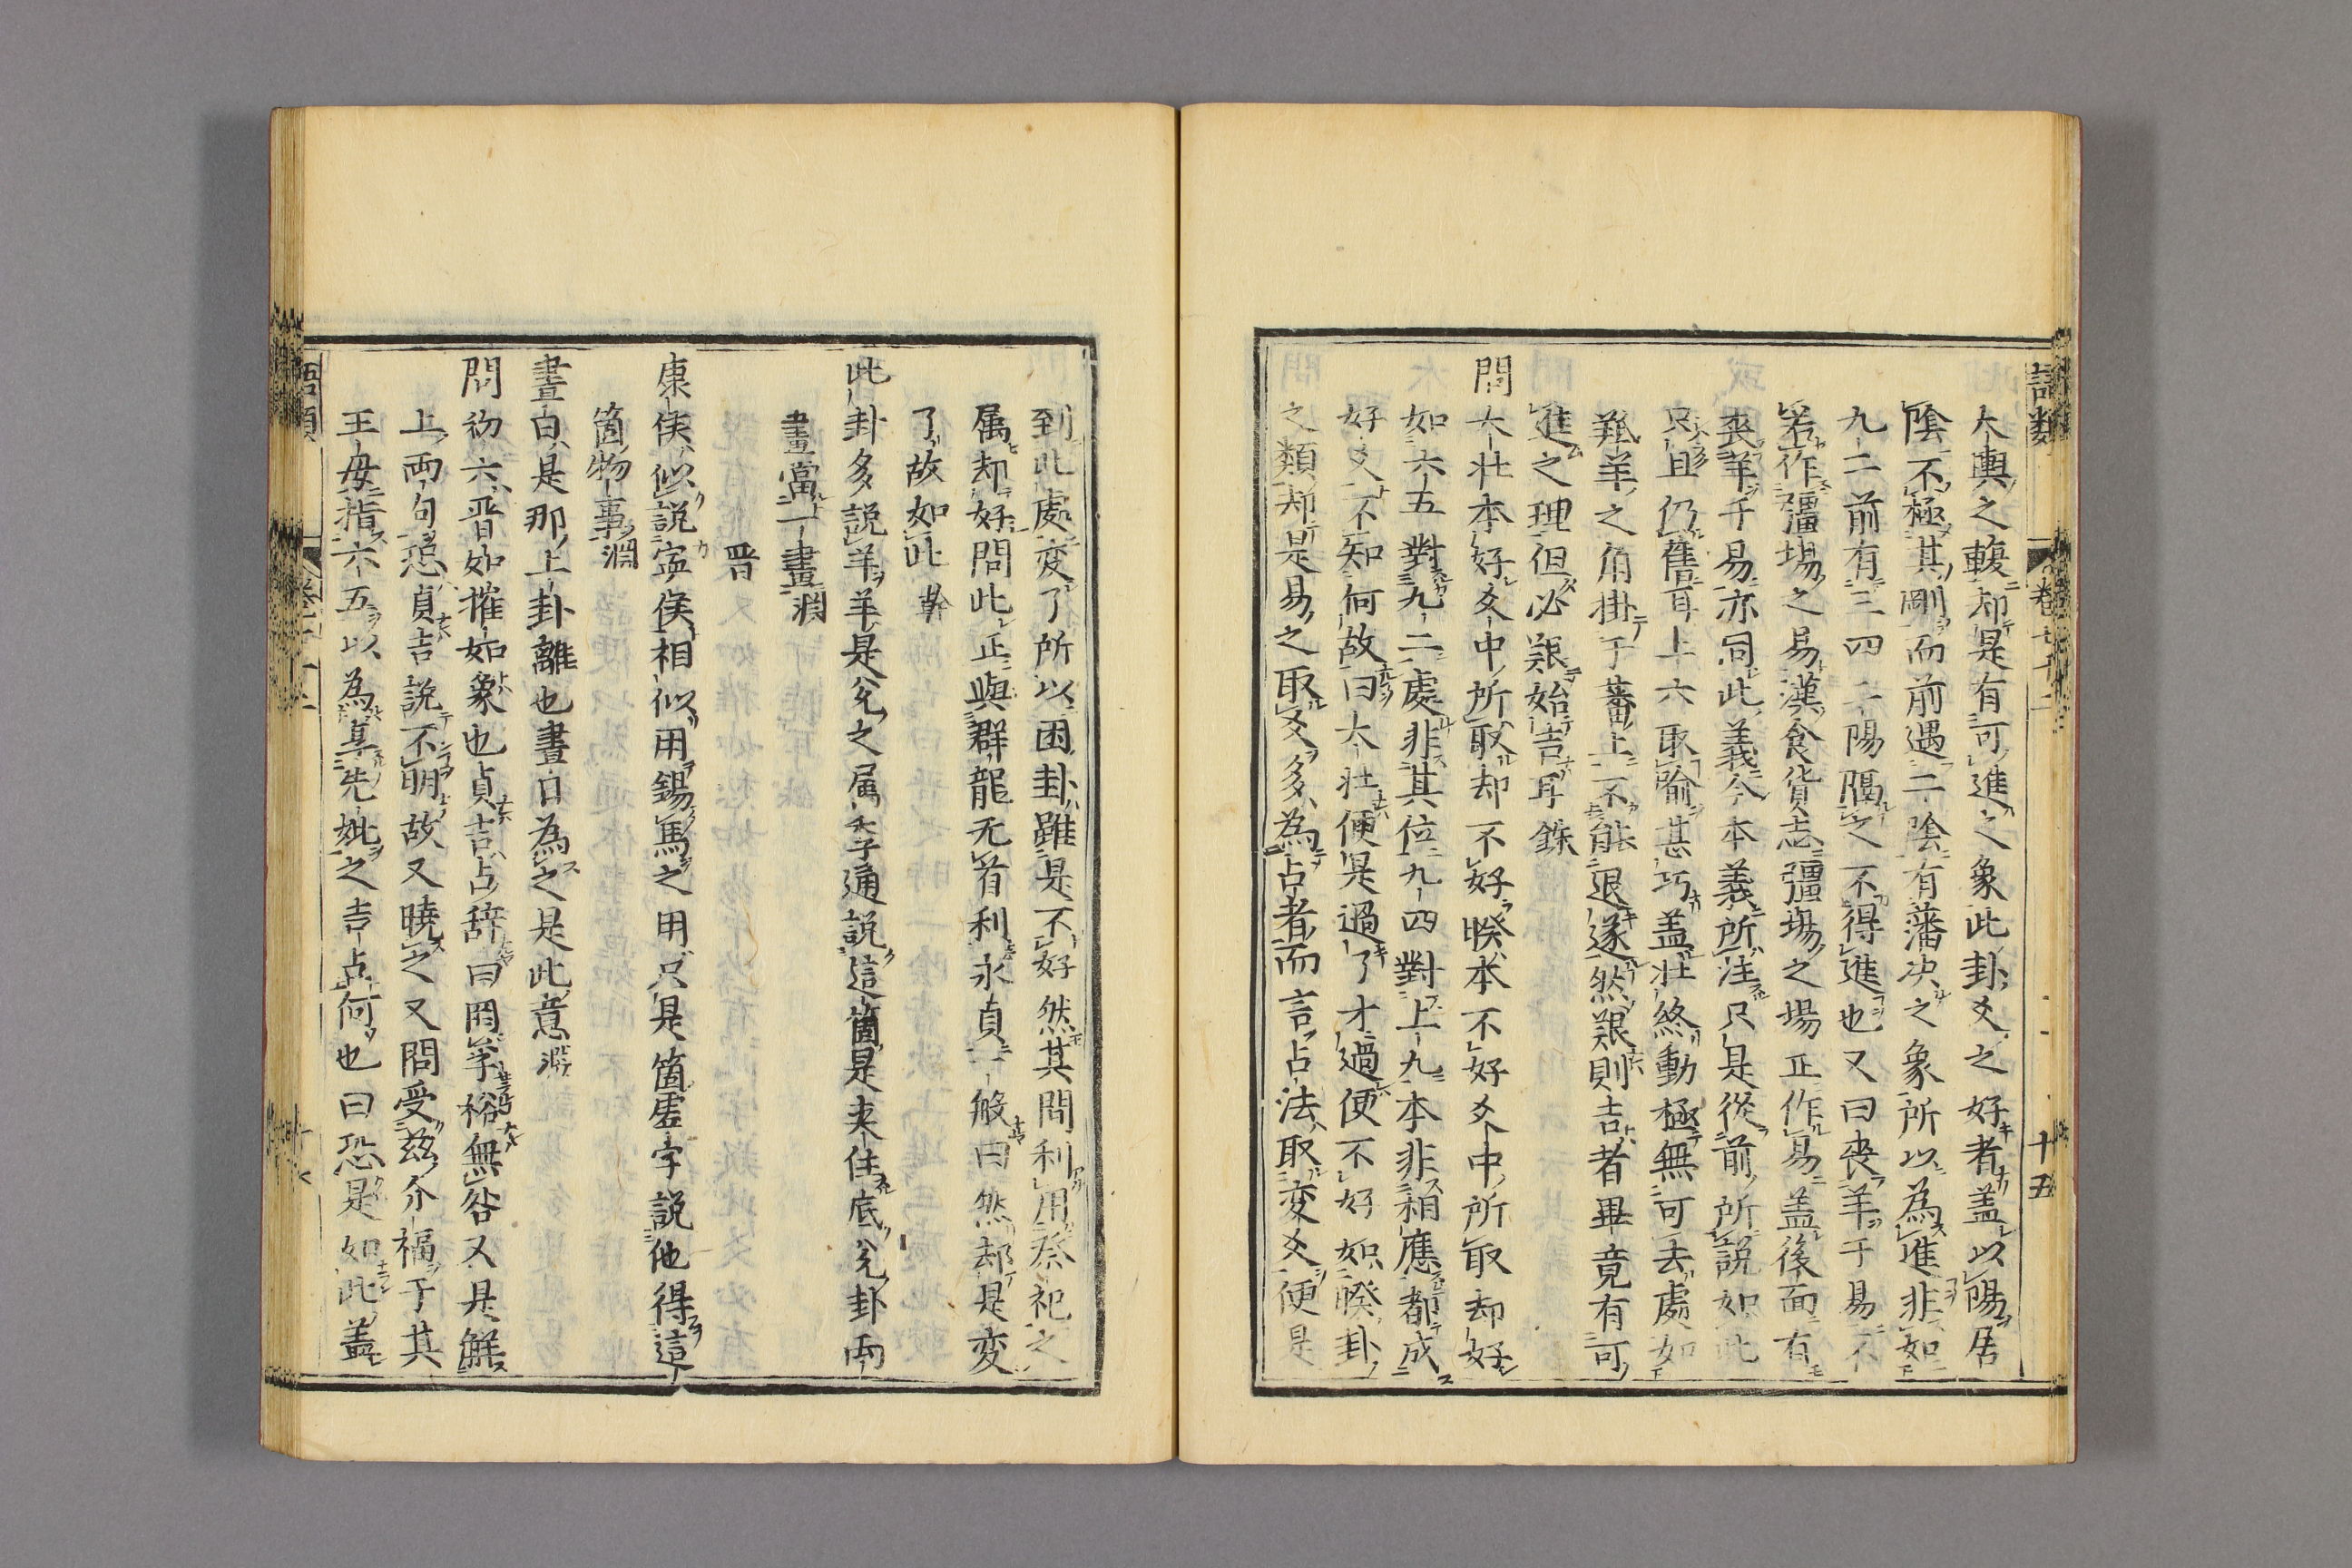 語類 卷七十二 十五
大輿之輹却是有可進之象此卦爻之好者蓋以陽居
陰不極其剛而前遇二陰有藩决之象所以為進非如
九二前有三四二陽隔之不得進也又曰喪羊于易不
若作疆場之易漢食貨志疆場之場正作易蓋後面有
喪羊于易亦同此義今本義所注只是從前所說如此
只且仍舊耳上六取喻甚巧蓋壯終動極無可去處如
羝羊之角掛于藩上不能退遂然艱則吉者畢竟有可
進之理但必艱始吉耳銖
問大壯本好爻中所取却不好睽本不好爻中所取却好
如六五對九二處非其位九四對上九本非相應都成
好爻不知何故曰大壯便是過了才過便不好如睽卦
之類却是易之取爻多為占者而言占法取変爻便是
到此處変了所以困卦雖是不好然其間利用祭祀之
属却好問此正與群龍无首利永貞一般曰然却是変
了故如此 榦
此卦多說羊羊是兊之属季通說這箇是夾住底兊卦兩
畫當一畫淵
晋
康侯似說寧侯相似用錫馬之用只是箇虛字說他得這
箇物事淵
晝日是那上卦離也晝日為之是此意淵
問初六晋如摧如象也貞吉占辞曰罔孚裕無咎又是解
上兩句恐貞吉說不明故又曉之又問受茲介福于其
王母指六五以為享先妣之吉占何也曰恐是如此蓋
語類